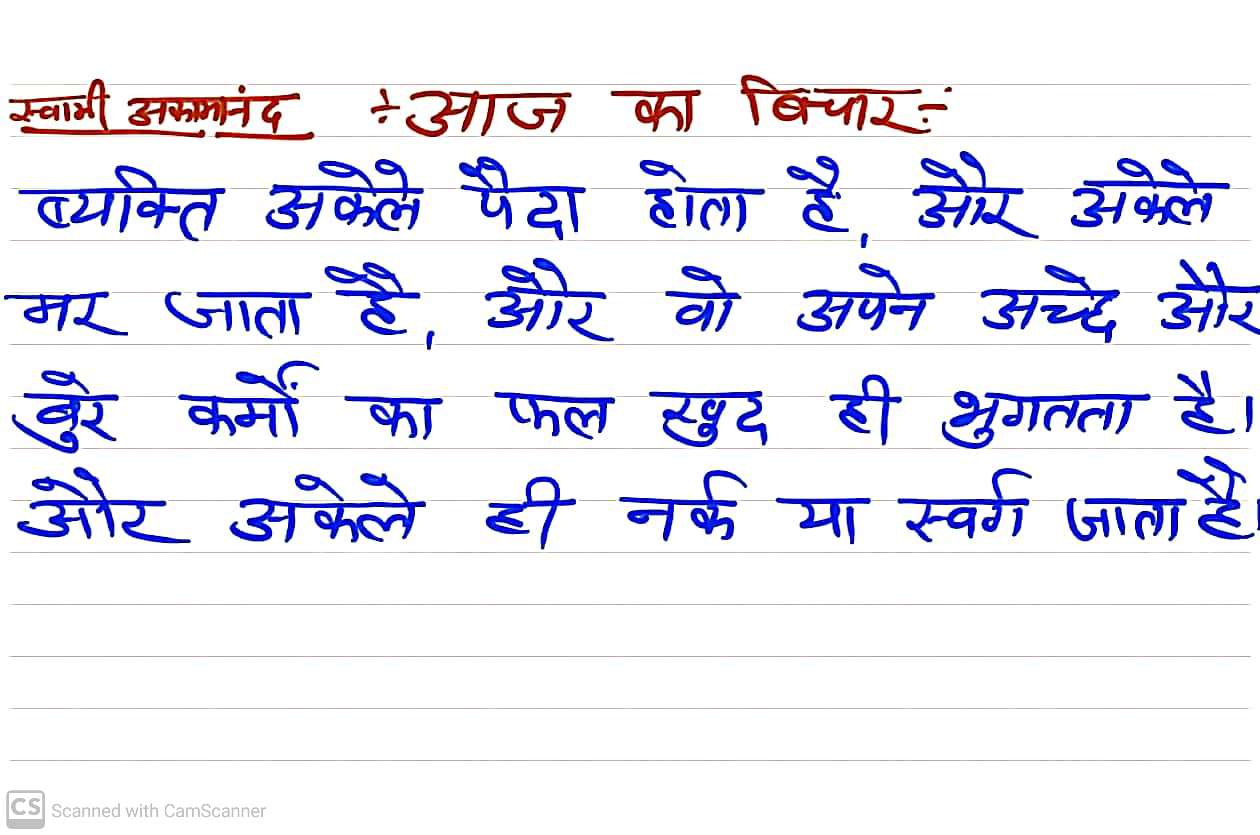 स्वामी अकामानंद ÷ आज का बिचार ÷
व्यक्ति अकेले पैदा होता है, और अकेले
मर जाता है, और वो अपने अच्छे और
बुरे कर्मों का फल खुद ही भुगतता है।
और अकेले ही नर्क या स्वर्ग जाता है।
CS Scanned with CamScanner